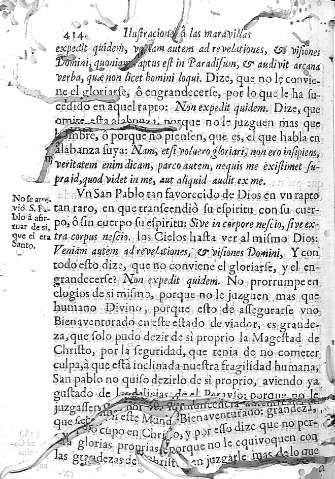 414. Ilustraciones á las maravillas
expedit quidem, veniam autem ad revelationes, & visiones
Domini, quoniam raptus est in Paradisum, & audivit arcana
verba, quæ non licet homini loqui. Dize, que no le convie-
ne el gloriarse, ò engrandecerse, por lo que ha su-
cedido en aquel rapto: Non expedit quidem. Dize, que
omite esta alabança, porque no le juzguen mas que
hombre, ò porque no piensen, que es, el que habla en
alabanza suya: Nam, etsi voluero gloriari, non ero insipiens,
veritatem enim dicam, parco autem, nequis me existimet su-
pra id, quod videt in me, aut aliquid audit ex me.
Vn San Pablo tan favorecido de Dios en vn rapto
No se atre-
viò S. Pa-
blo à afir-
mar de si,
que el era
Santo.
tan raro, en que transcendiò su espiritu con su cuer-
po, ò sin cuerpo su espiritu: Sive in corpore nescio, sive ex-
tra corpus nescio, los Cielos hasta ver al mismo Dios:
Veniam autem ad revelationes, & visiones Domini, Y con
todo esto dize, que no conviene el gloriarse, y el en-
grandecerse? Non expedit quidem. No prorrumpe en
elogios de si mismo, porque no le juzguen mas que
humano Divino, porque esto de assegurarse vno
Bienaventurado en este estado de viador, es grande-
za, que solo pudo dezir de si proprio la Magestad de
Christo, por la seguridad, que tenia de no cometer
culpa, à que està inclinada nuestra fragilidad humana,
San pablo no quiso dezirlo de si proprio, aviendo ya
gustado de las delicias de el Parayso; porque no le
juzgassen por
que solo en este Mundo Bienaventurado: grandeza,
que solo cupo en Christo, y por esso dize que no per-
glorias proprias, porque no le equivoquen con
las grandezas de Christo en juzgarle mas de lo que